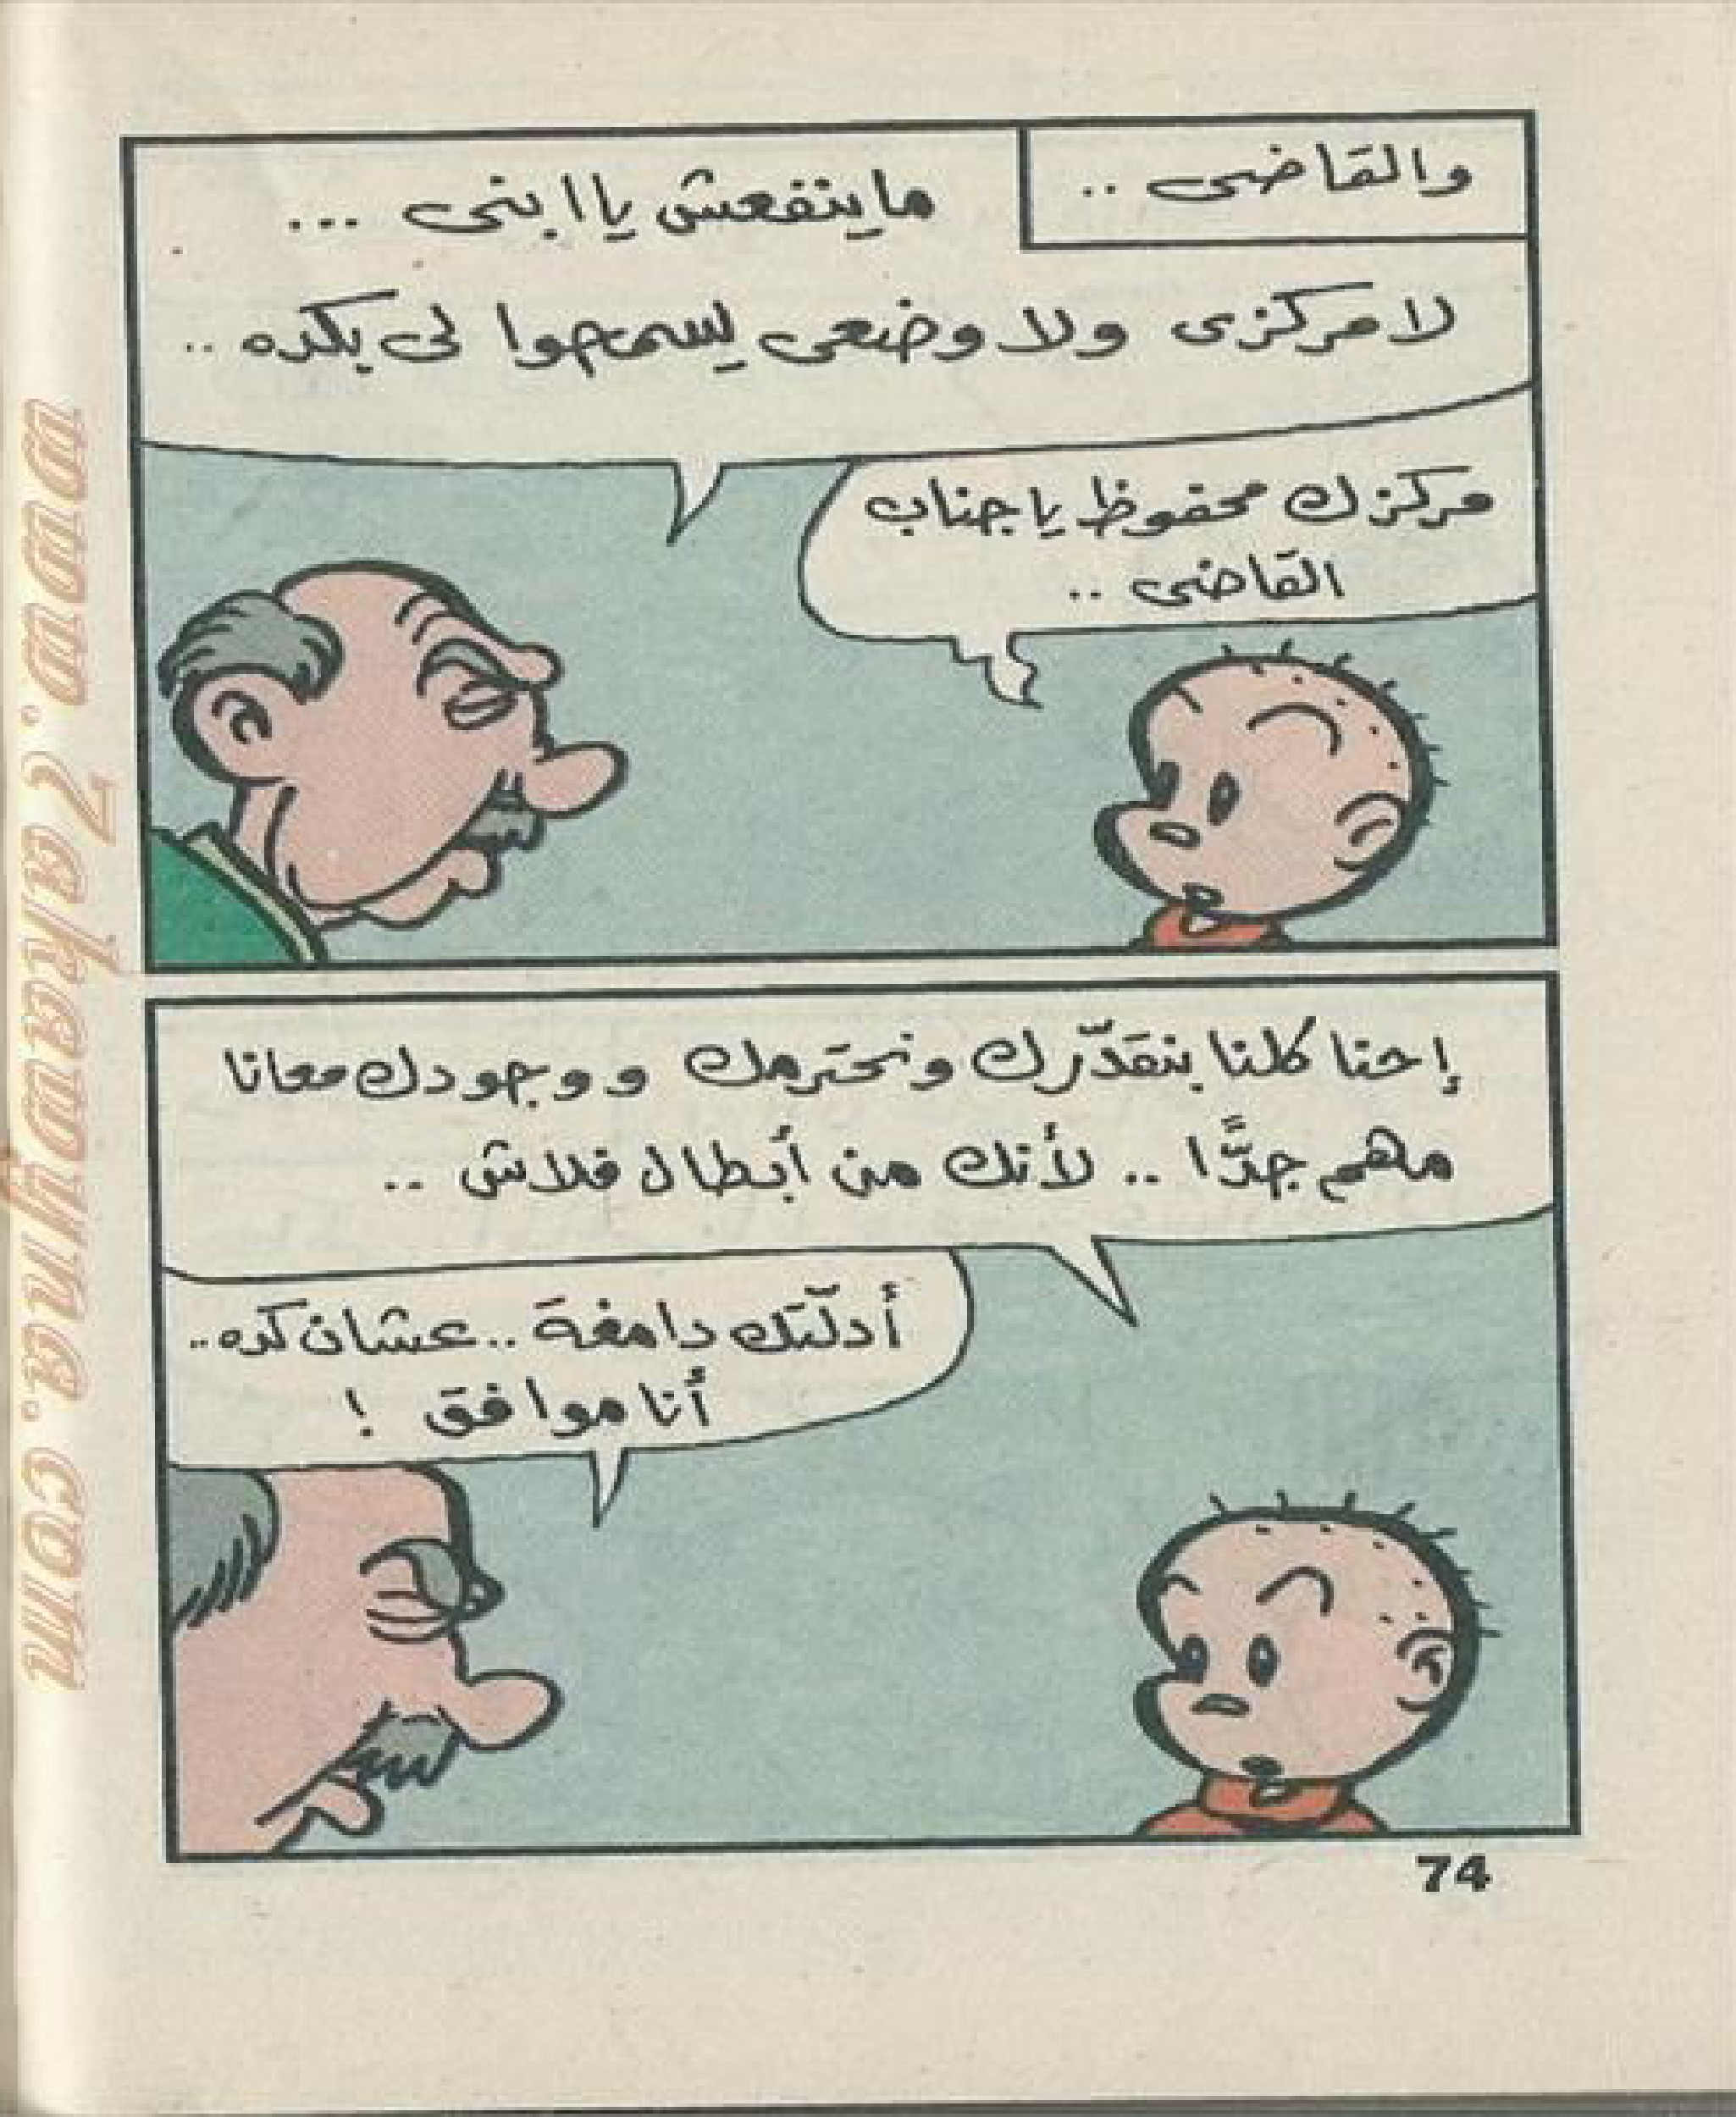 والقاضى ..
ماينفعش ياابنى ...
لا مركزى ولا وضعى يسمحوا لى بكده ..
مركزك محفوظ ياجناب
القاضى ..
إحنا كلنا بنقدّرك ونحترمك ووجودك معانا
مهم جدًّا .. لأنك من أبطال فلاش ..
أدلّتك دامغة .. عشان كده ..
أنا موافق !
74
www.7akawyna.com